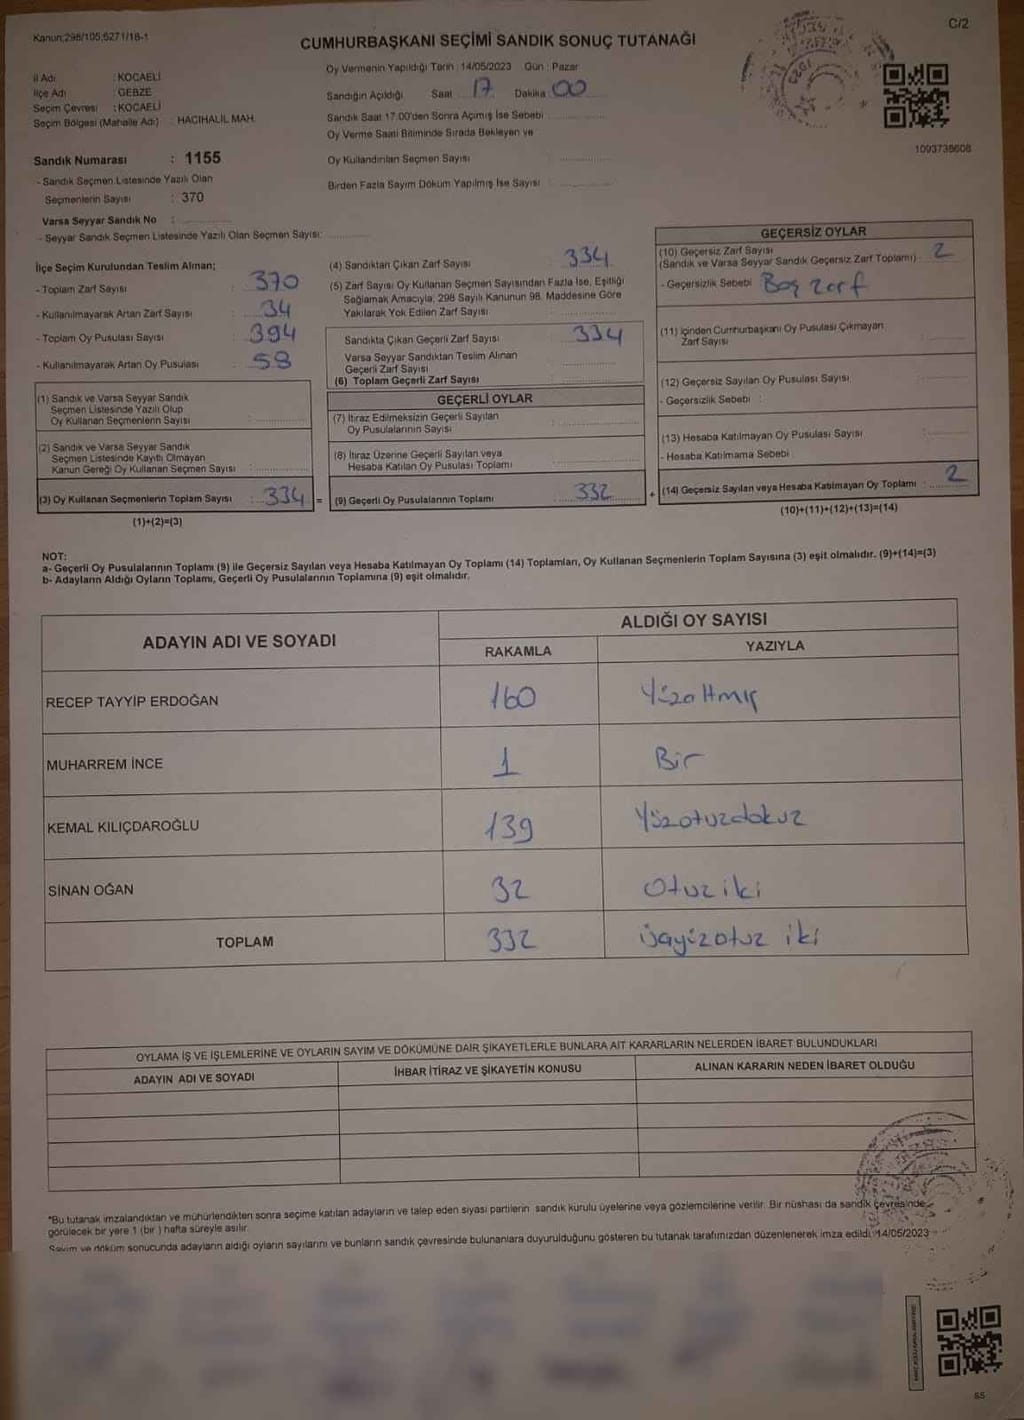 Kanun:298/105;6271/18-1
C/2
CUMHURBAŞKANI SEÇİMİ SANDIK SONUÇ TUTANAĞI
İl Adı : KOCAELİ
İlçe Adı : GEBZE
Seçim Çevresi : KOCAELİ
Seçim Bölgesi (Mahalle Adı) : HACIHALİL MAH.
Oy Vermenin Yapıldığı Tarih : 14/05/2023 Gün : Pazar
Sandığın Açıldığı Saat 17 Dakika 00
Sandık Saat 17.00'den Sonra Açımış İse Sebebi
Oy Verme Saati Bitiminde Sırada Bekleyen ve
Oy Kullandırılan Seçmen Sayısı
Birden Fazla Sayım Döküm Yapılmış İse Sayısı
1093738608
Sandık Numarası : 1155
- Sandık Seçmen Listesinde Yazılı Olan
Seçmenlerin Sayısı : 370
Varsa Seyyar Sandık No :
- Seyyar Sandık Seçmen Listesinde Yazılı Olan Seçmen Sayısı:
İlçe Seçim Kurulundan Teslim Alınan;
- Toplam Zarf Sayısı : 370
- Kullanılmayarak Artan Zarf Sayısı : 34
- Toplam Oy Pusulası Sayısı : 394
- Kullanılmayarak Artan Oy Pusulası : 58
(1) Sandık ve Varsa Seyyar Sandık
Seçmen Listesinde Yazılı Olup
Oy Kullanan Seçmenlerin Sayısı
(2) Sandık ve Varsa Seyyar Sandık
Seçmen Listesinde Kayıtlı Olmayan
Kanun Gereği Oy Kullanan Seçmen Sayısı :
(3) Oy Kullanan Seçmenlerin Toplam Sayısı : 334 =
(1)+(2)=(3)
(4) Sandıktan Çıkan Zarf Sayısı 334
(5) Zarf Sayısı Oy Kullanan Seçmen Sayısından Fazla İse, Eşitliği
Sağlamak Amacıyla, 298 Sayılı Kanunun 98. Maddesine Göre
Yakılarak Yok Edilen Zarf Sayısı
Sandıkta Çıkan Geçerli Zarf Sayısı 334
Varsa Seyyar Sandıktan Teslim Alınan
Geçerli Zarf Sayısı
(6) Toplam Geçerli Zarf Sayısı
GEÇERLİ OYLAR
(7) İtiraz Edilmeksizin Geçerli Sayılan
Oy Pusulalarının Sayısı
(8) İtiraz Üzerine Geçerli Sayılan veya
Hesaba Katılan Oy Pusulası Toplamı
(9) Geçerli Oy Pusulalarının Toplamı 332 +
GEÇERSİZ OYLAR
(10) Geçersiz Zarf Sayısı
(Sandık ve Varsa Seyyar Sandık Geçersiz Zarf Toplamı) 2
- Geçersizlik Sebebi Boş zarf
(11) İçinden Cumhurbaşkanı Oy Pusulası Çıkmayan
Zarf Sayısı
(12) Geçersiz Sayılan Oy Pusulası Sayısı
- Geçersizlik Sebebi :
(13) Hesaba Katılmayan Oy Pusulası Sayısı
- Hesaba Katılmama Sebebi
(14) Geçersiz Sayılan veya Hesaba Katılmayan Oy Toplamı : 2
(10)+(11)+(12)+(13)=(14)
NOT:
a- Geçerli Oy Pusulalarının Toplamı (9) ile Geçersiz Sayılan veya Hesaba Katılmayan Oy Toplamı (14) Toplamları, Oy Kullanan Seçmenlerin Toplam Sayısına (3) eşit olmalıdır. (9)+(14)=(3)
b- Adayların Aldığı Oyların Toplamı, Geçerli Oy Pusulalarının Toplamına (9) eşit olmalıdır.
ADAYIN ADI VE SOYADI
ALDIĞI OY SAYISI
RAKAMLA YAZIYLA
RECEP TAYYİP ERDOĞAN 160 Yüzaltmış
MUHARREM İNCE 1 Bir
KEMAL KILIÇDAROĞLU 139 Yüzotuzdokuz
SİNAN OĞAN 32 Otuziki
TOPLAM 332 üçyüzotuz iki
OYLAMA İŞ VE İŞLEMLERİNE VE OYLARIN SAYIM VE DÖKÜMÜNE DAİR ŞİKAYETLERLE BUNLARA AİT KARARLARIN NELERDEN İBARET BULUNDUKLARI
ADAYIN ADI VE SOYADI İHBAR İTİRAZ VE ŞİKAYETİN KONUSU ALINAN KARARIN NEDEN İBARET OLDUĞU
*Bu tutanak imzalandıktan ve mühürlendikten sonra seçime katılan adayların ve talep eden siyasi partilerin sandık kurulu üyelerine veya gözlemcilerine verilir. Bir nüshası da sandık çevresinde
görülecek bir yere 1 (bir ) hafta süreyle asılır.
Sayım ve döküm sonucunda adayların aldığı oyların sayılarını ve bunların sandık çevresinde bulunanlara duyurulduğunu gösteren bu tutanak tarafımızdan düzenlenerek imza edildi. 14/05/2023
SS